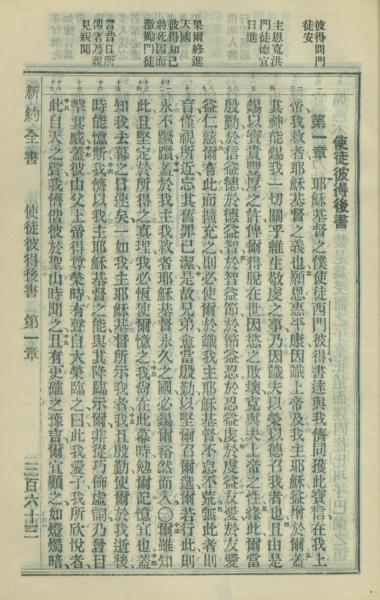 彼得問門
徒安
主恩寬洪
門徒德宜
日進
果爾終進
天國
彼得知己
將死因而
激勵門徒
言昔日所
傳者乃親
見親聞
使徒彼得後書
第一章 耶穌基督之僕使徒西門彼得書達與我儕同獲此寶信在我上
帝我救者耶穌基督之義也願恩惠平康因識上帝及我主耶穌益增於爾蓋
其神能錫我一切關乎維生敬虔之事乃因識夫以榮以德召我者也且由是
錫以寶貴豐厚之許俾爾得脫在世因慾之敗壞克與夫上帝之性緣此爾當
殷勤於信益德於德益智於智益節於節益忍於忍益虔於虔益友愛於友愛
益仁慈爾有此而擴充之則必使爾於識我主耶穌基督不怠不荒無此者則
盲僅視所近忘其舊罪已潔是故兄弟愈當殷勤以堅爾召爾選爾若行此則
永不躓蹶蓋於我主我救者耶穌基督永久之國必錫爾裕然而入〇爾雖知
此且堅定於所得之真理我必恆使爾憶之我尚在此幕時勉爾記憶宜也蓋
知我去幕之日速矣一如我主耶穌基督所示我者我且殷勤使爾於我逝後
時能憶斯我儕以我主耶穌基督之能與其降臨示爾非從巧飾虛詞乃曾目
擊其威蓋彼由父上帝得尊榮時有聲自大榮臨之曰此我愛子我所欣悅者
此自天之聲我儕偕彼於聖山時聞之且有更確之豫言爾宜顧之如燈燭暗
新約全書 使徒彼得後書 第一章 三百六十三